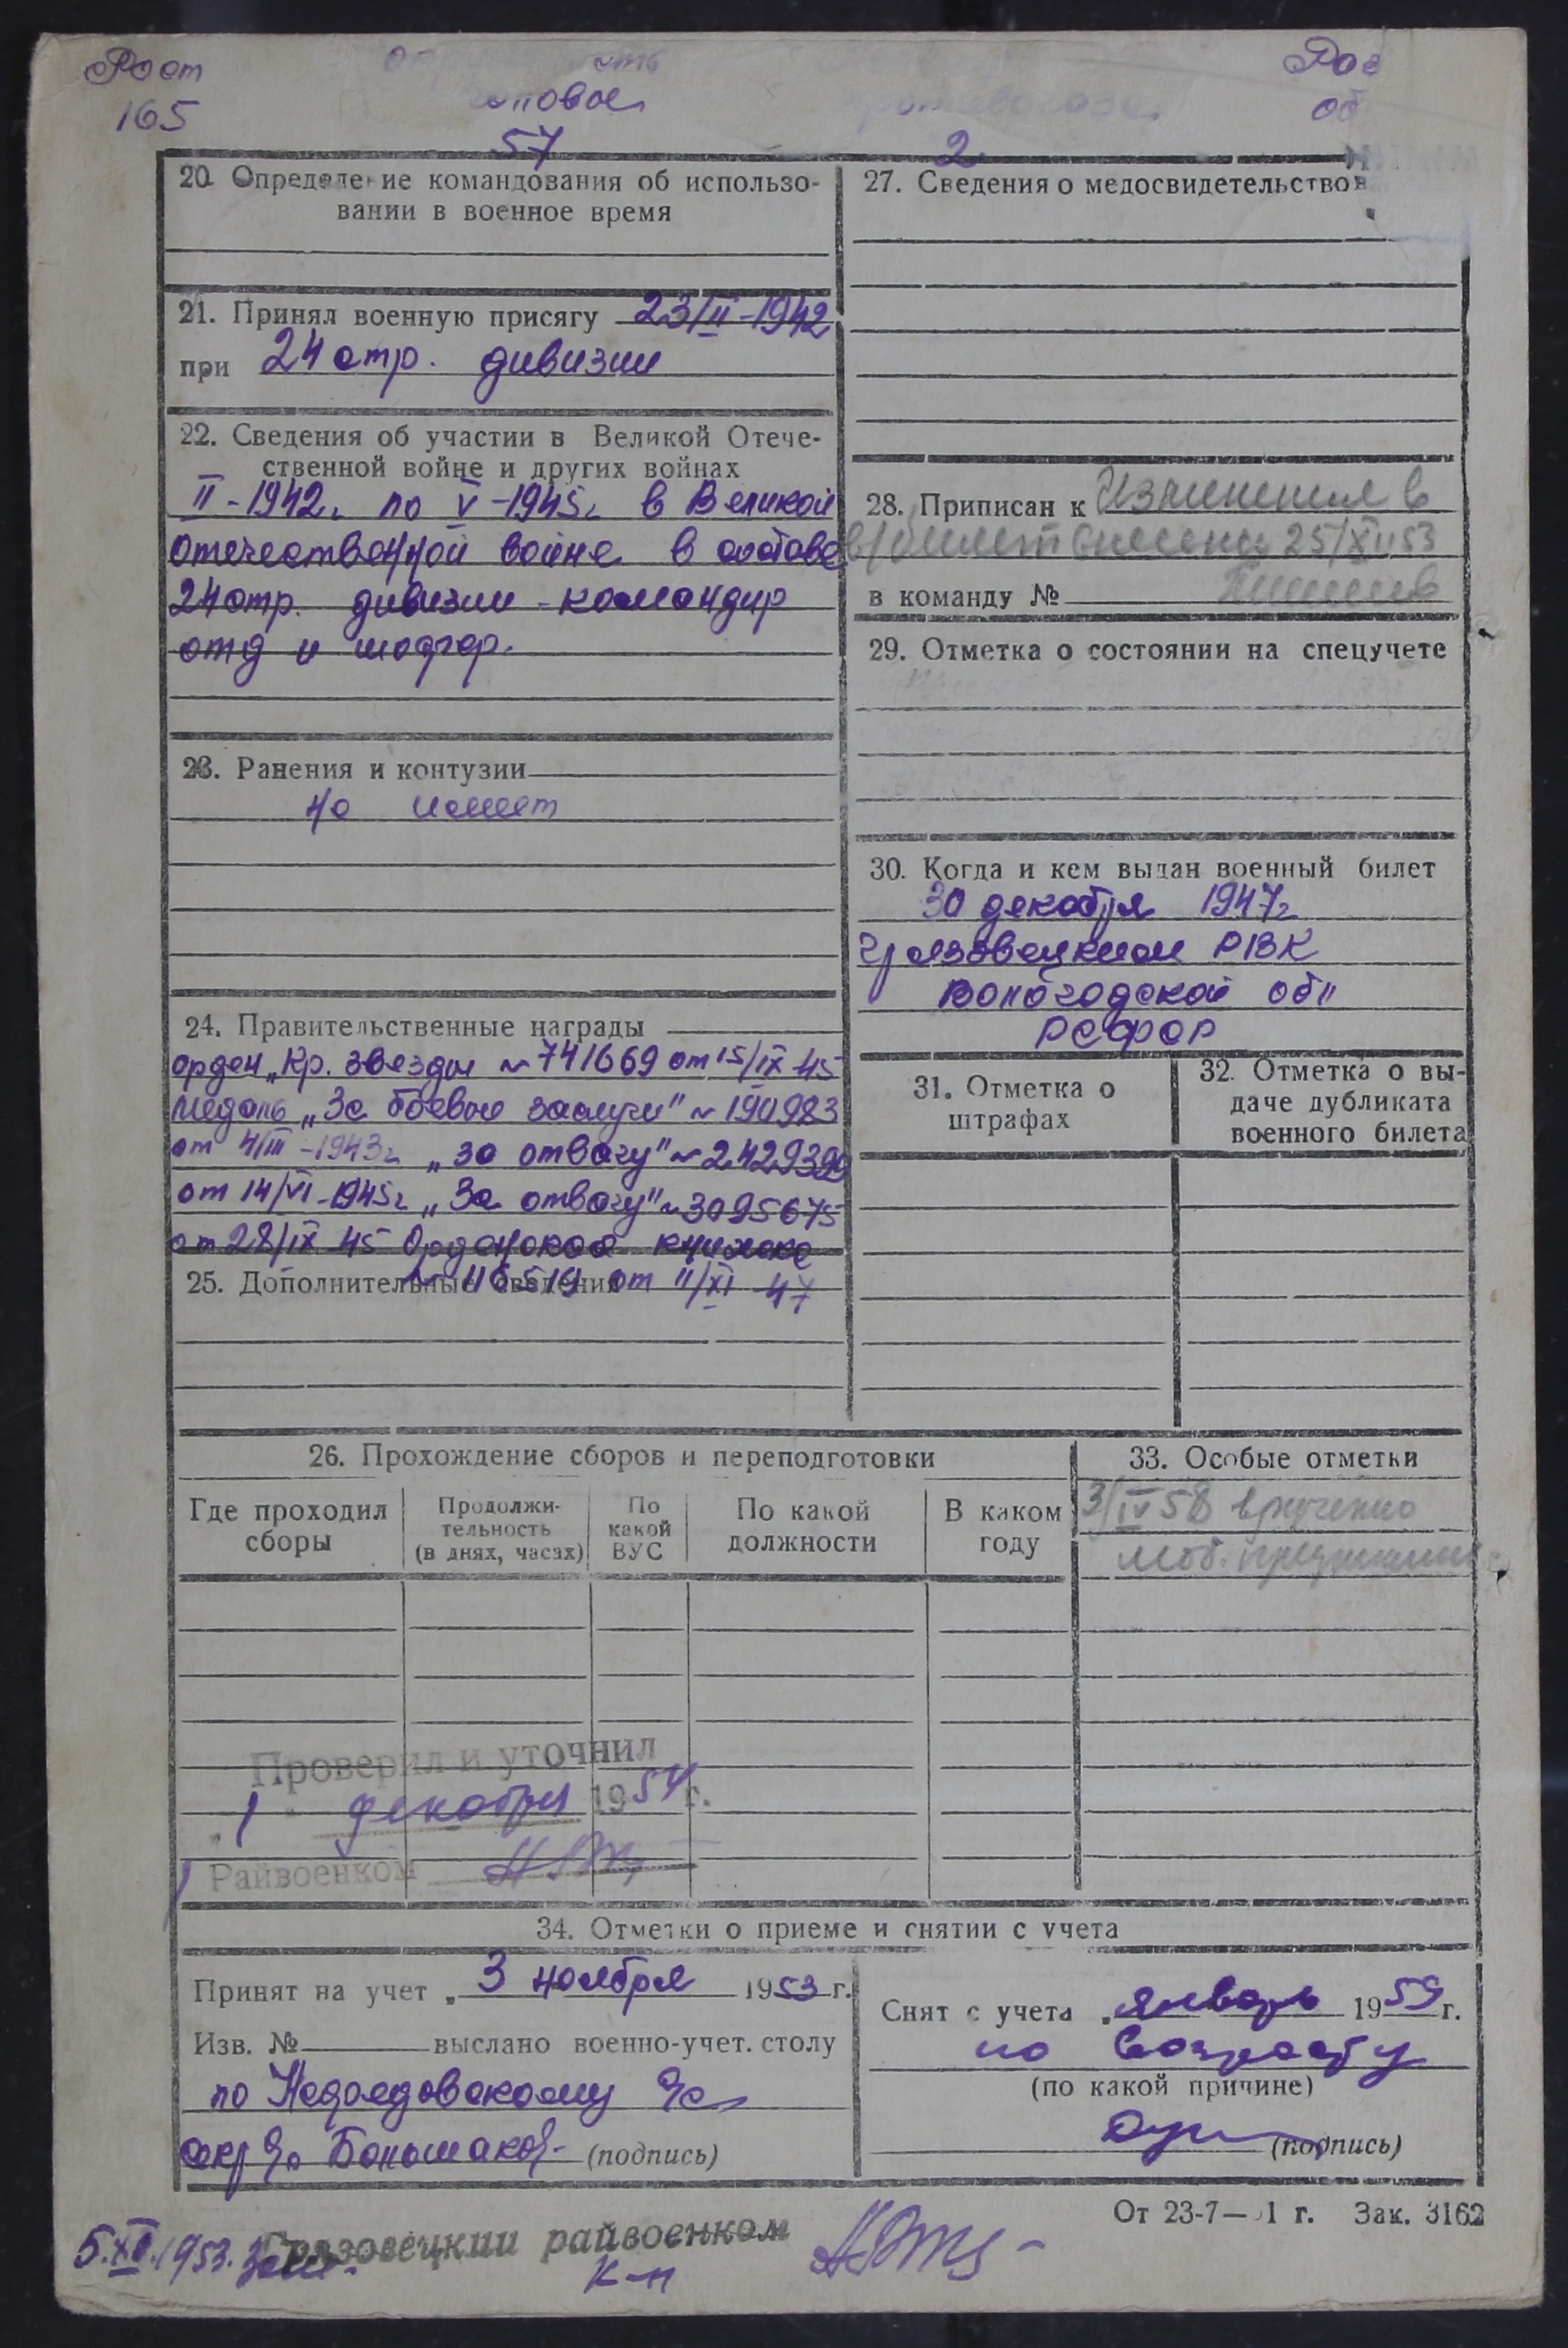 Рост
165
головы
57
2
Рос
об
20. Определение командования об использо-
вании в военное время
21. Принял военную присягу 23/II-1942
при 24 стр. дивизии
22. Сведения об участии в Великой Отече-
ственной войне и других войнах
II-1942г по V-1945г в Великой
отечественной войне в составе
24 стр. дивизии - командир
отд и
23. Ранения и контузии
не имеет
24. Правительственные награды
орден „Кр. звезды № 741669 от 15/IX 45
медаль „За боевые заслуги" № 190983
от 4/III-1943г „За отвагу" №
от 14/VI-1945г „За отвагу" № 3095675
от 28/IX 45 Орденская книжка
25. Дополнительные сведения
от II/XI 47
27. Сведения о медосвидетельствов
28. Приписан к Изменения в
в/билет внесены 25/XI 53
в команду №
29. Отметка о состоянии на спецучете
30. Когда и кем выдан военный билет
30 декабря 1947г
Грязовецким РВК
Вологодской обл
РСФСР
31. Отметка о
штрафах
32. Отметка о вы-
даче дубликата
военного билета
26. Прохождение сборов и переподготовки
Где проходил
сборы
Продолжи-
тельность
(в днях, часах)
По
какой
ВУС
По какой
должности
В каком
году
33. Особые отметки
3/IV 58 вручено
моб. предписание
Проверил и уточнил
„1" декабря 1954 г.
Райвоенком
34. Отметки о приеме и снятии с учета
Принят на учет „ 3 ноября 1953 г.
Изв. № выслано военно-учет. столу
по с/с
секр с/с (подпись)
Снят с учета „ январь 1959 г.
по возрасту
(по какой причине)
(подпись)
От 23-7— 1 г. Зак. 3162
5.XII.1953.
Грязовецкий райвоенком
к-н